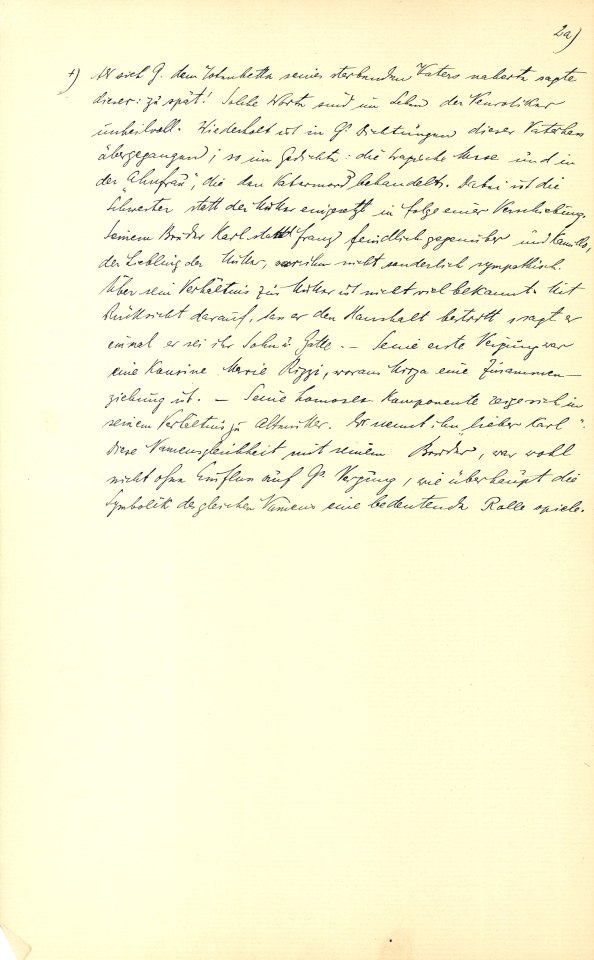 2a)
+) Als sich G. dem Totenbette seines sterbenden Vaters näherte sagte
dieser: zu spät! Solche Worte sind im Leben der Neurotiker
unheilvoll. Wiederholt ist in G's Dichtungen dieser Vater
übergegangen; so im Gedichte: die tragische Muse und in
der "Ahnfrau", die den Vatermord behandelt. Dabei ist die
Schwester statt der Mutter eingesetzt in folge einer Verschiebung.
Seinem Bruder Karl steht Franz feindlich gegenüber und Kamillo,
der Liebling der Mutter, war ihm nicht sonderlich sympathisch.
Über sein Verhältnis zur Mutter ist nicht viel bekannt. Mit
Rücksicht darauf, dass er den Haushalt bestritt, sagt er
einmal er sei ihr Sohn u Gatte. — Seine erste Neigung war
eine Kousine Marie Rizzi, woraus eine Zusammen-
ziehung ist. — Seine homosex. Komponente zeige sich in
seinem Verhältnis zu Altmütter. Er nennt ihn "lieber Karl".
Diese Namensgleichheit mit seinem Bruder, war wohl
nicht ohne Einfluss auf G's Neigung, wie überhaupt die
Symbolik des gleichen Namens eine bedeutende Rolle spiele.